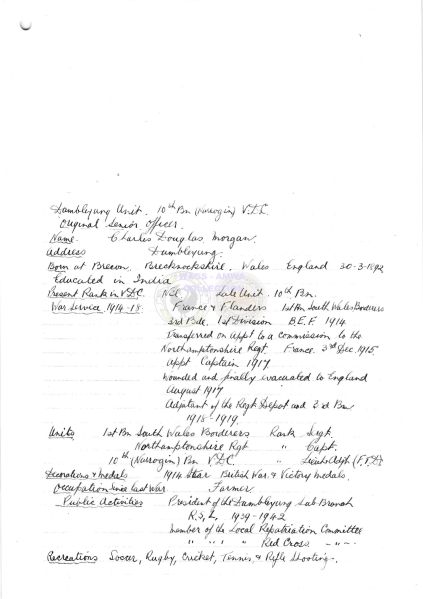 Dumbleyung Unit. 10th Bn (Narrogin) V.D.C.
Original Senior Officer.
Name. Charles Douglas Morgan.
Address Dumbleyung.
Born at Brecon. Brecknockshire. Wales. England 30-3-1892
Educated in India
Present Rank in V.D.C. Nil. Late Unit. 10th Bn.
War Service 1914-18. France & Flanders 1st Bn South Wales Borderers
3rd Bde. 1st Division B.E.F. 1914.
Transferred on appt to a commission to the
Northamptonshire Regt. France. 3rd Dec. 1915
Appt Captain 1917
Wounded and finally evacuated to England
August 1917
Adjutant of the Regt Depot and 3rd Bn
1918-1919.
Units 1st Bn South Wales Borderers Rank Sergt.
Northamptonshire Regt " Capt.
10th (Narrogin) Bn V.D.C. "
Decorations & Medals 1914 Star British War & Victory Medals.
Occupation since last War Farmer
Public Activities President of the Dumbleyung Sub Branch
R.S.L. 1939-1942
Member of the Local Repatriation Committee
" " " Red Cross - " -
Recreations Soccer, Rugby, Cricket, Tennis, & Rifle Shooting.